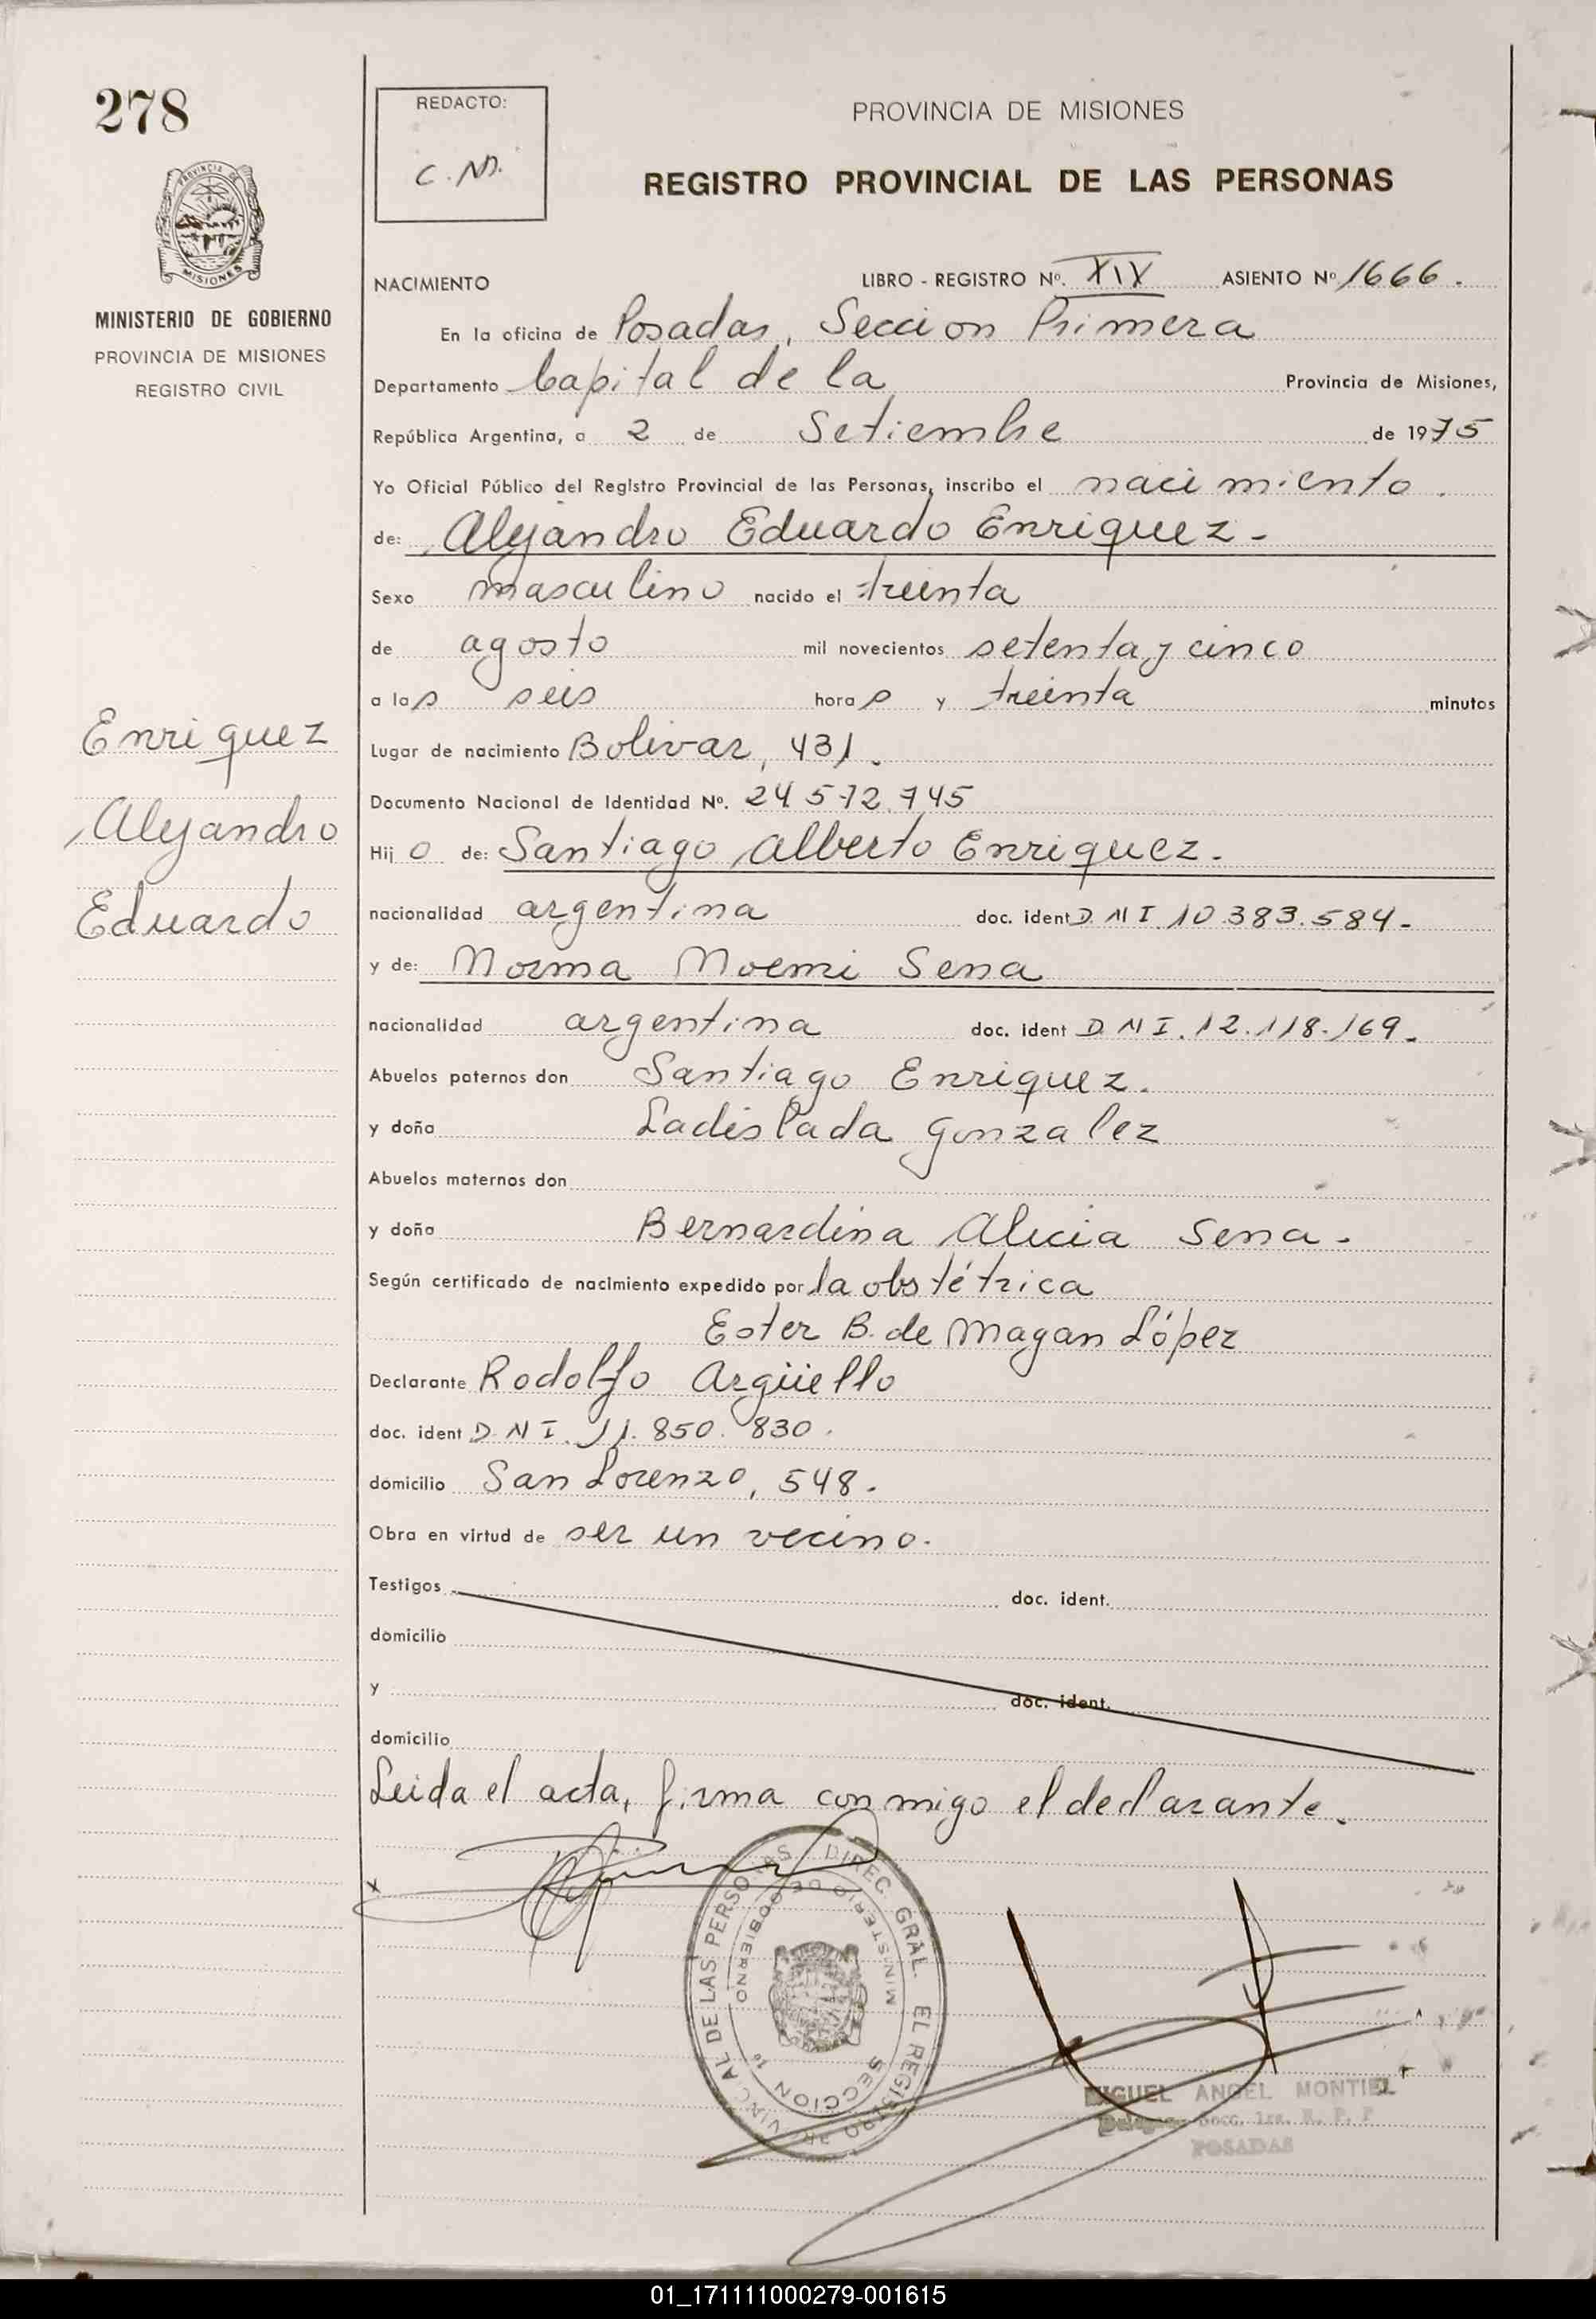 278
REDACTO:
C. M.
PROVINCIA DE MISIONES
REGISTRO PROVINCIAL DE LAS PERSONAS
PROVINCIA DE
MISIONES
MINISTERIO DE GOBIERNO
PROVINCIA DE MISIONES
REGISTRO CIVIL
NACIMIENTO LIBRO - REGISTRO Nº. XIX ASIENTO Nº 1666.
En la oficina de Posadas, Seccion Primera
Departamento Capital de la Provincia de Misiones,
República Argentina, a 2 de Setiembre de 1975
Yo Oficial Público del Registro Provincial de las Personas, inscribo el nacimiento.
de: Alejandro Eduardo Enriquez.-
Sexo masculino nacido el treinta
de agosto mil novecientos setenta y cinco
a las seis horas y treinta minutos
Lugar de nacimiento Bolivar, 431.
Documento Nacional de Identidad Nº. 24.572.745
Hijo de: Santiago Alberto Enriquez.
nacionalidad argentina doc. ident D.N.I. 10.383.584.-
y de: Norma Noemi Sena
nacionalidad argentina doc. ident D.N.I. 12.118.169.-
Abuelos paternos don Santiago Enriquez.
y doña Ladislada Gonzalez
Abuelos maternos don
y doña Bernardina Alicia Sena.
Según certificado de nacimiento expedido por la obstétrica
Ester B. de Magan López
Declarante Rodolfo Argüello
doc. ident D.N.I. 11.850.830.
domicilio San Lorenzo, 548.
Obra en virtud de ser un vecino.
Testigos doc. ident.
domicilio
y doc. ident.
domicilio
Leida el acta, firma conmigo el declarante.
Enriquez
Alejandro
Eduardo
x
DIREC. GRAL. EL REGISTRO PROVINCIAL DE LAS PERSONAS
MINISTERIO DE GOBIERNO
SECCION 1ª
MIGUEL ANGEL MONTIEL
Secc. 1ra. R. P. P
POSADAS
01_171111000279-001615